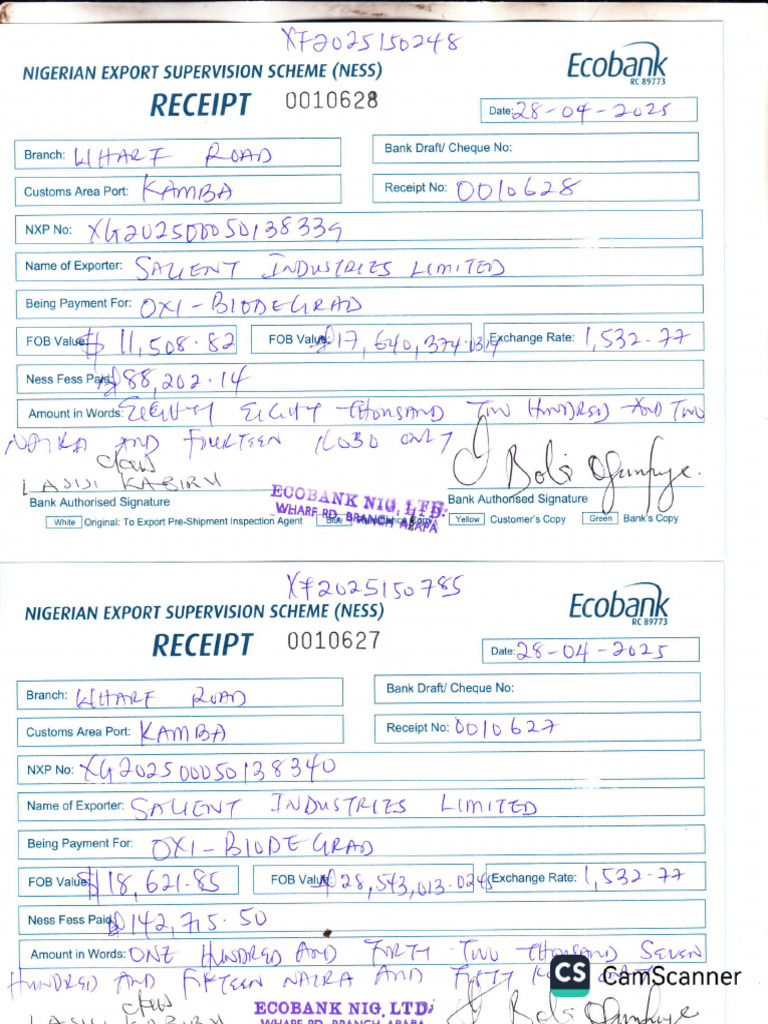 XF2025150248
NIGERIAN EXPORT SUPERVISION SCHEME (NESS)
Ecobank
RC 89773
RECEIPT 0010628
Date: 28-04-2025
Branch: WHARF ROAD
Bank Draft/ Cheque No:
Customs Area Port: KAMBA
Receipt No: 0010628
NXP No: XG202500050138339
Name of Exporter: SALIENT INDUSTRIES LIMITED
Being Payment For: OXI-BIODEGRAD
FOB Value $ 11,508.82 FOB Value ₦17,640,374.0314 Exchange Rate: 1,532.77
Ness Fess Paid ₦88,202.14
Amount in Words: EIGHTY EIGHT THOUSAND TWO HUNDRED AND TWO
NAIRA AND FOURTEEN KOBO ONLY
LASISI KABIRU
Bank Authorised Signature
ECOBANK NIG. LTD.
WHARF RD. BRANCH APAPA
Bank Authorised Signature
White Original: To Export Pre-Shipment Inspection Agent Blue Yellow Customer's Copy Green Bank's Copy
XF2025150785
NIGERIAN EXPORT SUPERVISION SCHEME (NESS)
Ecobank
RC 89773
RECEIPT 0010627
Date: 28-04-2025
Branch: WHARF ROAD
Bank Draft/ Cheque No:
Customs Area Port: KAMBA
Receipt No: 0010627
NXP No: XG202500050138340
Name of Exporter: SALIENT INDUSTRIES LIMITED
Being Payment For: OXI-BIODEGRAD
FOB Value $ 18,621.85 FOB Value ₦28,543,013.0245 Exchange Rate: 1,532.77
Ness Fess Paid ₦142,715.50
Amount in Words: ONE HUNDRED AND FORTY TWO THOUSAND SEVEN
HUNDRED AND FIFTEEN NAIRA AND FIFTY
CS CamScanner
LASISI KABIRU
ECOBANK NIG. LTD.
WHARF RD. BRANCH APAPA